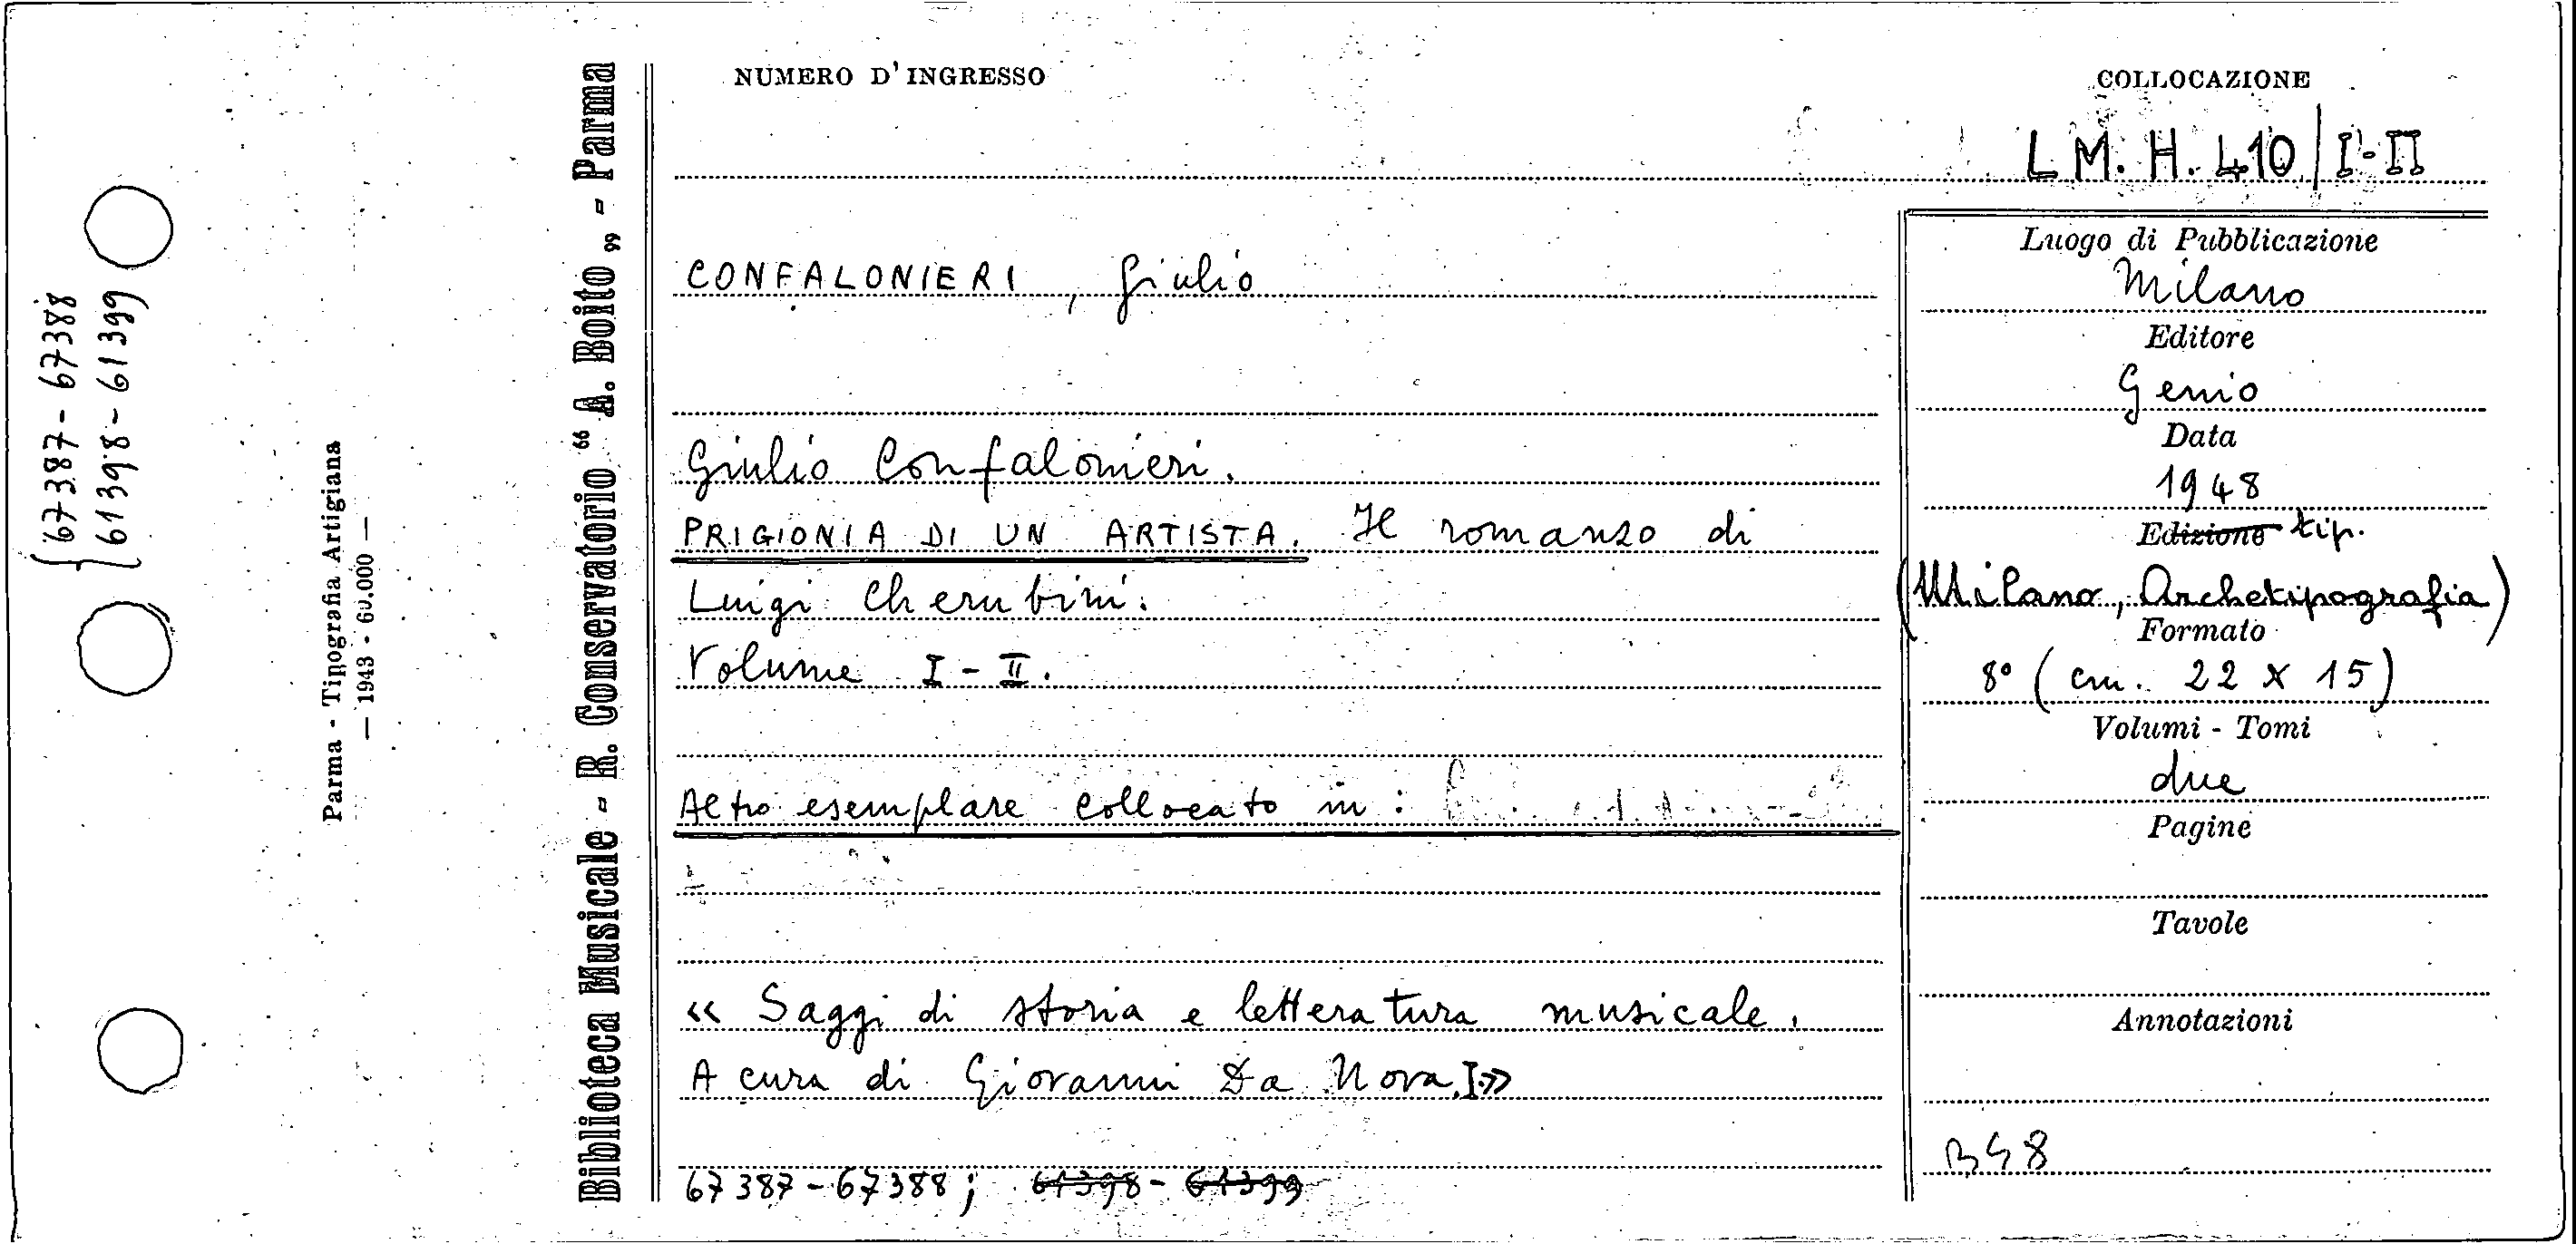 67387-67388
61398-61399
Parma - Tipografia Artigiana
— 1943 - 60.000 —
Biblioteca Musicale - R. Conservatorio “ A. Boito „ - Parma
NUMERO D'INGRESSO
COLLOCAZIONE
L M. H. 410/I-II
CONFALONIERI, Giulio
Giulio Confalonieri.
PRIGIONIA DI UN ARTISTA. Il romanzo di
Luigi Cherubini.
Volume I-II.
Altro esemplare collocato in:
« Saggi di storia e letteratura musicale.
A cura di Giovanni Da Nova.I.»
67387-67388; 61398-61399
Luogo di Pubblicazione
Milano
Editore
Genio
Data
1948
Edizione tip.
(Milano, Archetipografia)
Formato
8° (cm. 22 x 15)
Volumi - Tomi
due
Pagine
Tavole
Annotazioni